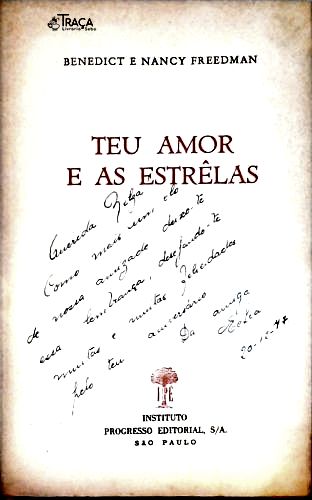 TRAÇA
Livraria e Sebo
BENEDICT E NANCY FREEDMAN
TEU AMOR
E AS ESTRÊLAS
Querida Nilza
Como mais um elo
de nossa amizade deixo-te
essa lembrança, desejando-te
muitas e muitas felicidades
pelo teu aniversário
Da amiga
20-12-47
IPE
INSTITUTO
PROGRESSO EDITORIAL, S/A.
SÃO PAULO